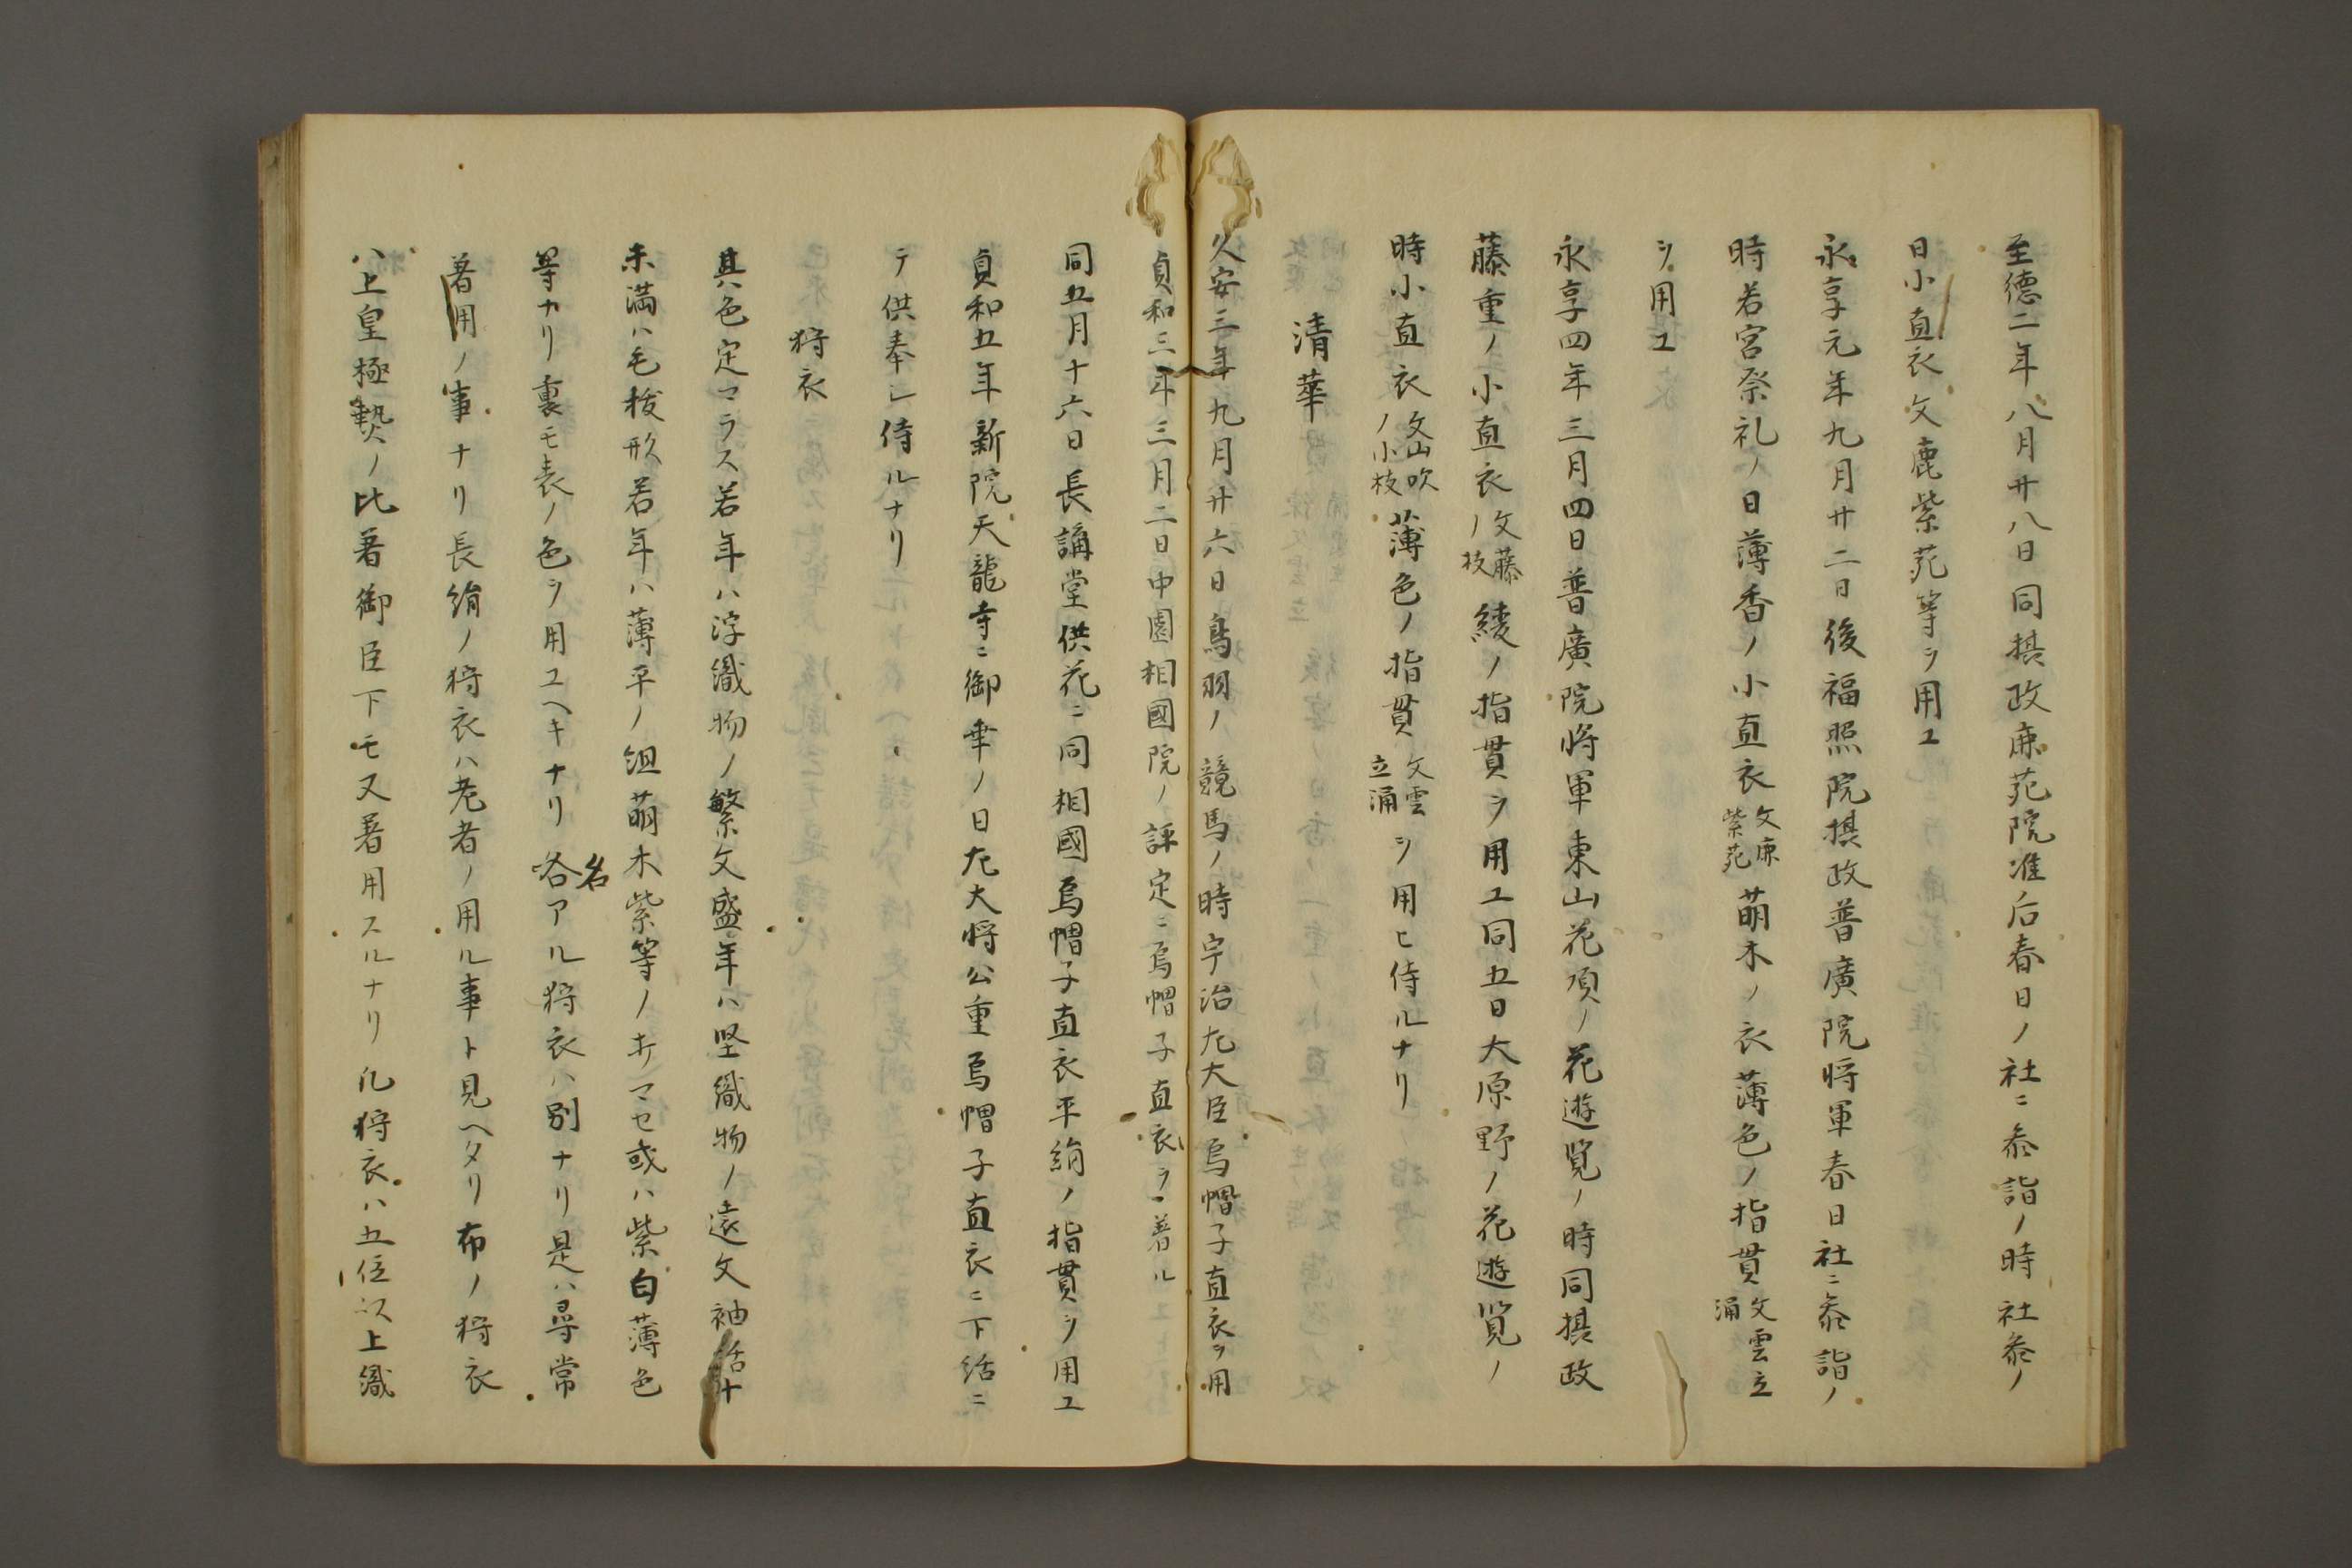 至徳二年八月廿八日同摂政鹿苑院准后春日ノ社ニ参詣ノ時社参ノ
日小直衣文鹿紫苑等ヲ用ユ
永享元年九月廿二日後福照院摂政普廣院将軍春日社ニ参詣ノ
時若宮祭礼ノ日薄香ノ小直衣文鹿紫苑萌木ノ衣薄色ノ指貫文雲立涌
ヲ用ユ
永享四年三月四日普廣院将軍東山花頂ノ花遊覧ノ時同摂政
藤重ノ小直衣文藤ノ枝綾ノ指貫ヲ用ユ同五日大原野ノ花遊覧ノ
時小直衣文山吹ノ小枝薄色ノ指貫文雲立涌ヲ用ヒ侍ルナリ
清華
久安三年九月廿六日鳥羽ノ競馬ノ時宇治左大臣烏帽子直衣ヲ用
貞和三年三月二日中園相國院ノ評定ニ烏帽子直衣ヲ著ルユ
同五月十六日長講堂供花ニ同相國烏帽子直衣平絹ノ指貫ヲ用ユ
貞和五年新院天龍寺ニ御幸ノ日左大将公重烏帽子直衣ニ下括ニ
テ供奉シ侍ルナリ
狩衣
其色定マラス若年ハ浮織物ノ繁文盛年ハ堅織物ノ遠文袖括十
未満ハ毛抜形若年ハ薄平ノ組萌木紫等ノキマセ或ハ紫白薄色
等ナリ裏モ表ノ色ヲ用ユヘキナリ各名アル狩衣ハ別ナリ是ハ尋常
著用ノ事ナリ長絹ノ狩衣ハ老者ノ用ル事ト見ヘタリ布ノ狩衣
ハ上皇極熱ノ比著御臣下モ又著用スルナリ凡狩衣ハ五位以上織